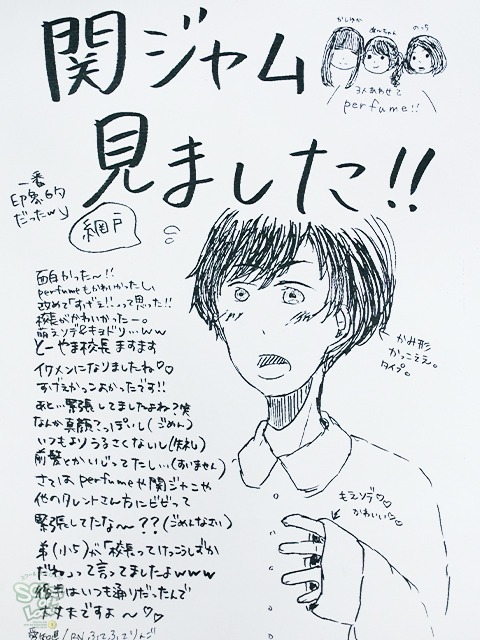 関ジャム
見ました!!
かしゆか
あ〜ちゃん
のっち
3人あわせて
perfume!!
一番
印象的
だったw
網戸
面白かった〜!!
perfumeもかわいかったし、
改めて「すげぇ!!」って思った!!
校長がかわいかったー。
萌えソデ&キョドリ…ww
とーやま校長ますます
イケメンになりましたね♡♡
すげぇかっこよかったです!!
あと…緊張してましたよね?笑
なんか真顔てっぽいし(ごめん)
いつもよりうるさくないし(失礼)
前髪とかいじってたし…(すいません)
さてはperfumeや関ジャニや
他のタレントさん方にビビって
緊張してたな〜??(ごめんなさい)
弟(小5)が「校長ってけっこうしずか
だね」って言ってましたよwww
後半はいつも通りだったんで
大丈夫ですよ〜♡♡
愛知県/RN ふてふてりんご
かみ形
かっこええ。
タイプ。
もえソデ♡
かわいい♡♡